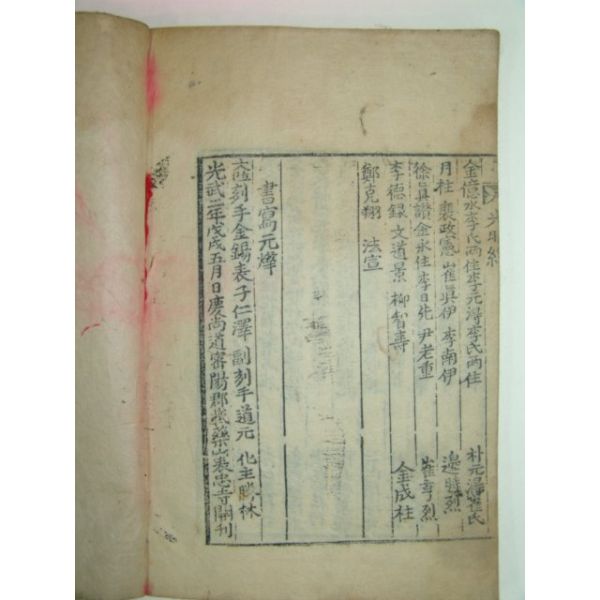 金億水李氏兩住李元淳李氏兩住 朴元淨崔氏
月柱 裵政憲 崔眞伊 李南伊 邉時烈
徐眞讃金永住李日先 尹老重 崔季烈
李德録 文道景 柳智壽 金成柱
鄭克翔 法宣
書寫元燁
大邱刻手金錫表子仁澤 副刻手道元 化主勝林
光武二年戊戌五月日慶尚道密陽郡載藥山表忠寺開刊